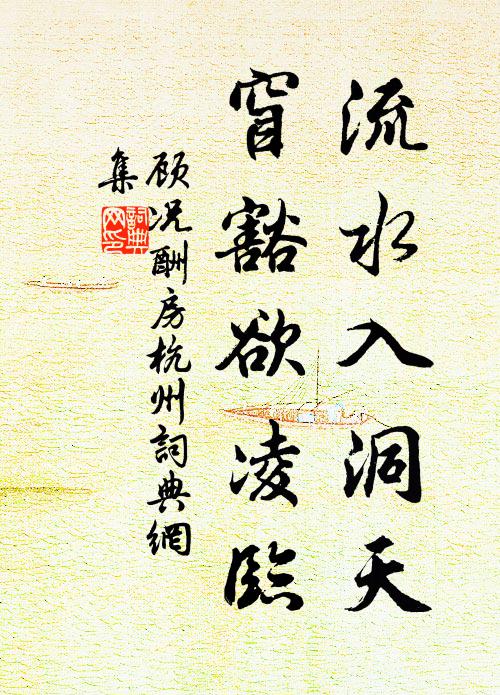 流水入洞天
窅豁欲凌臨
顾况酬房杭州詞典網
集
詞典
网印